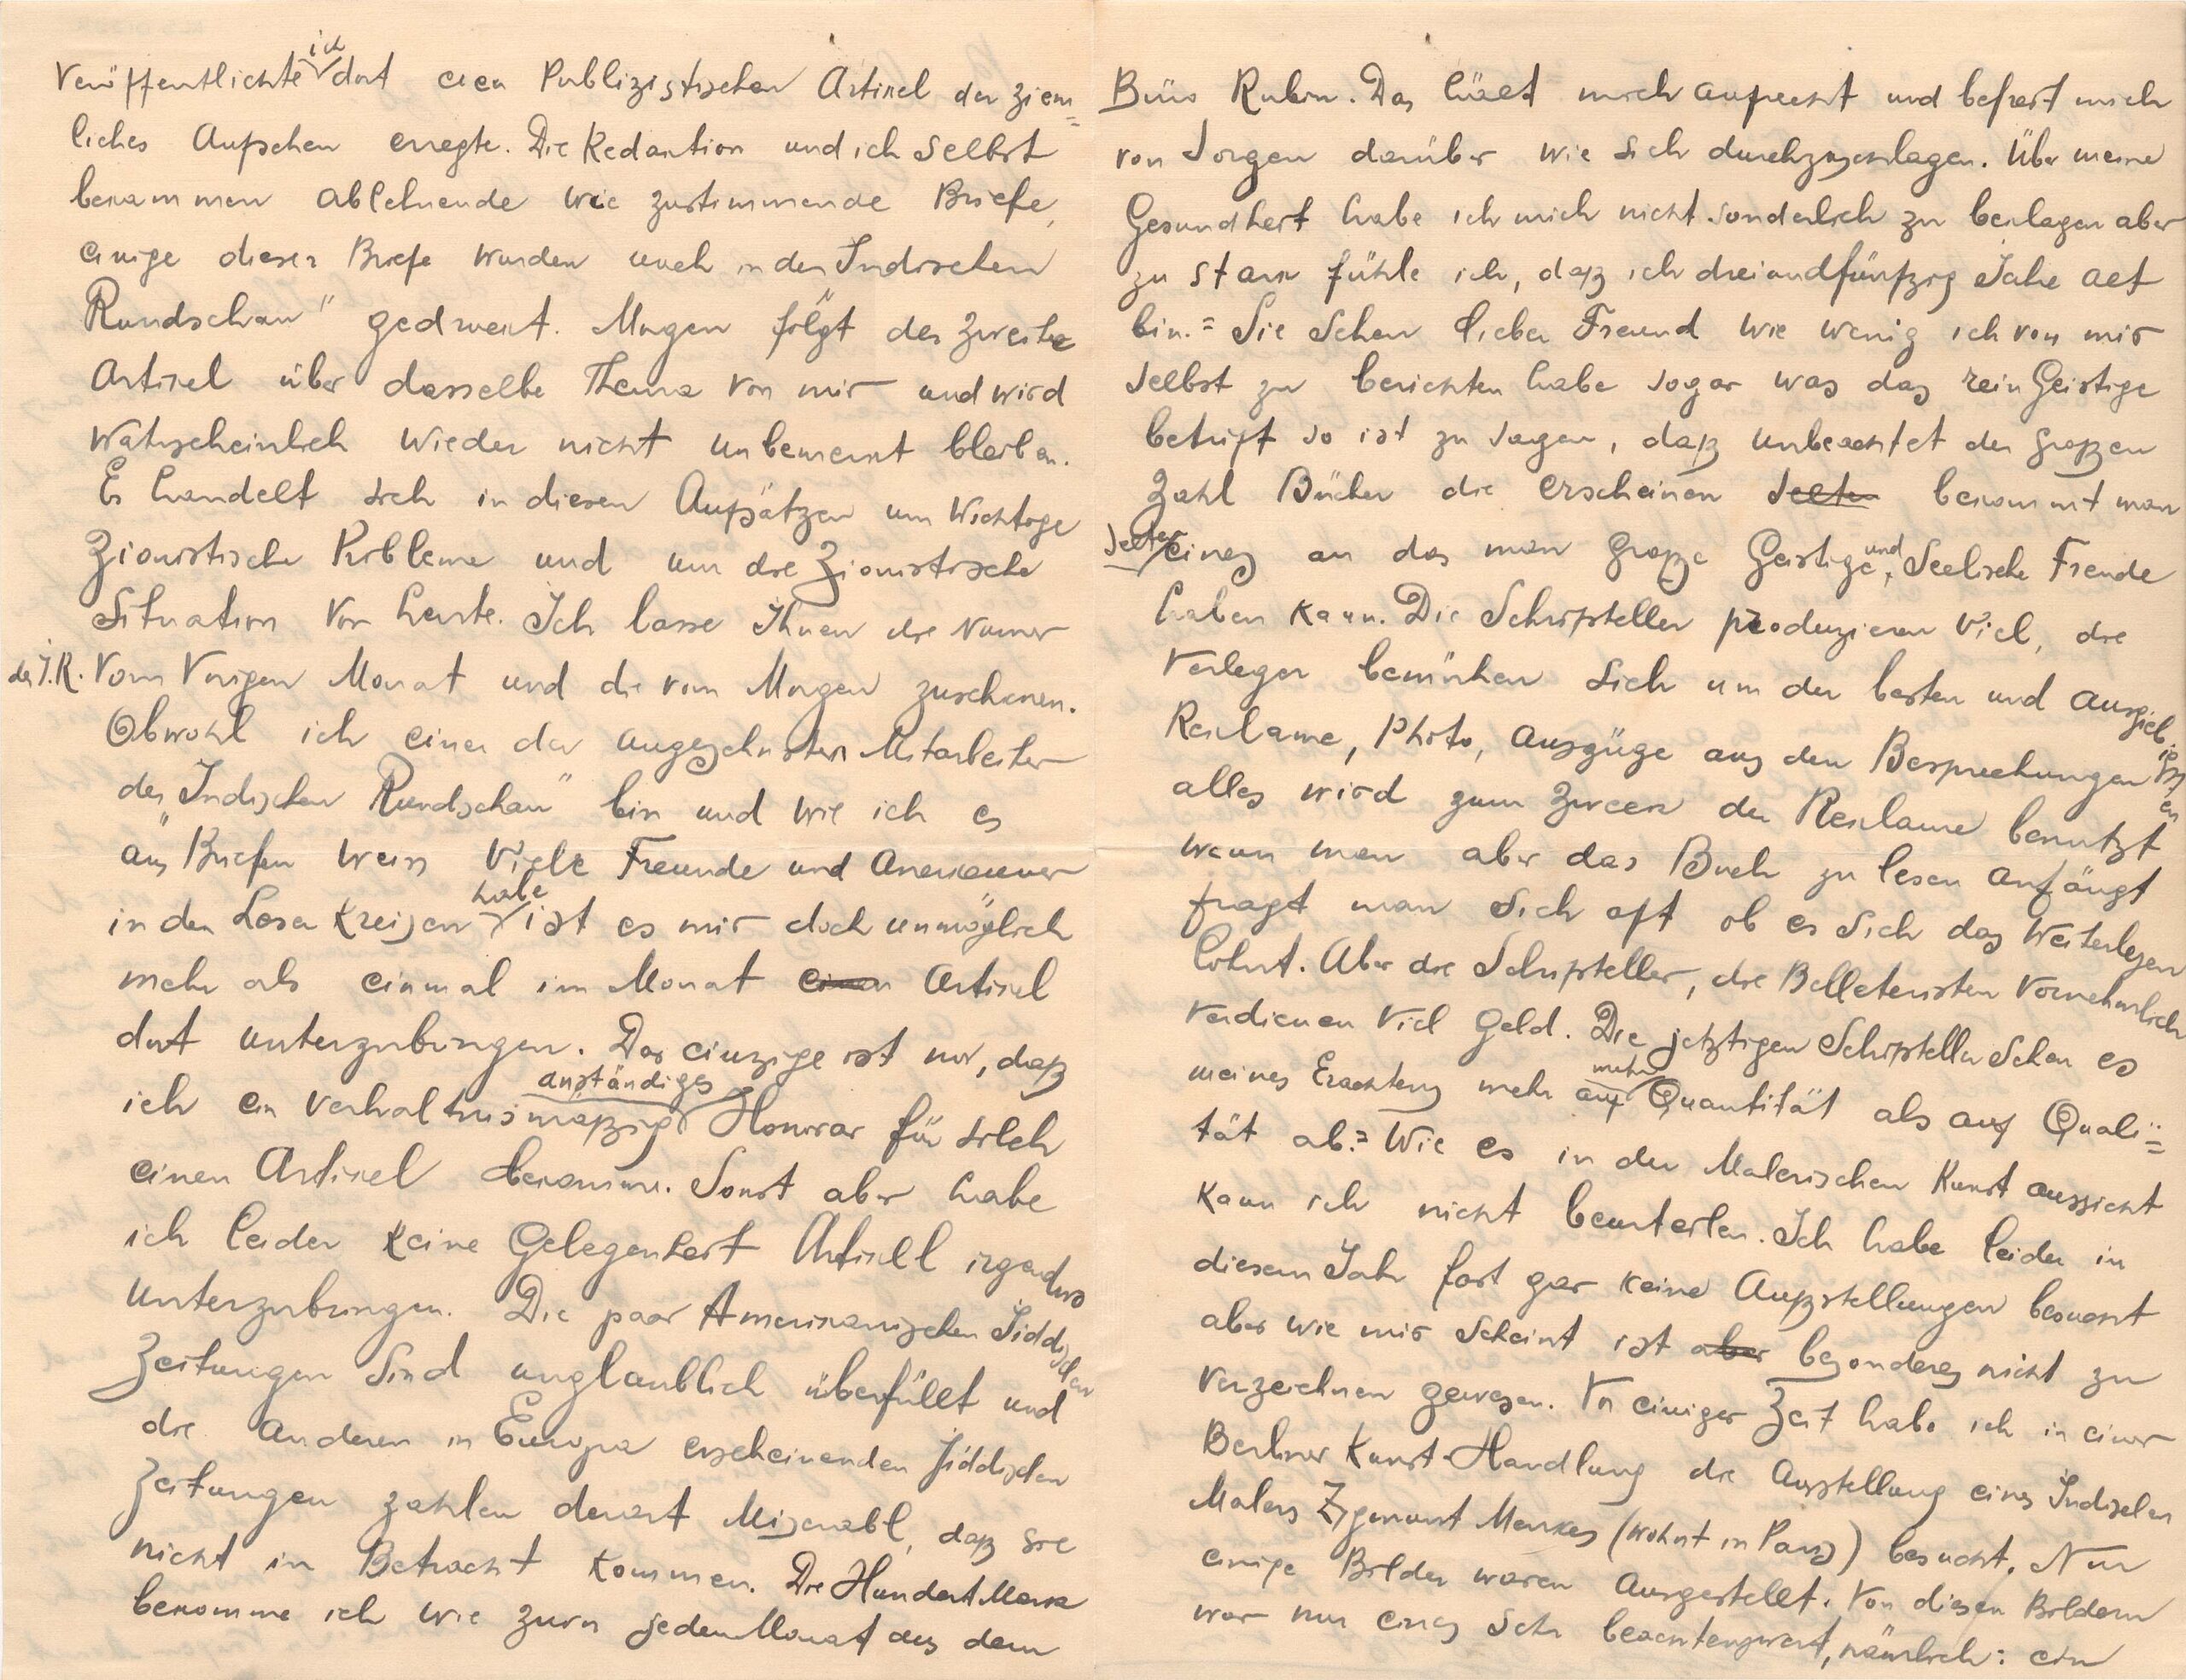 Veröffentlichte ich dort einen Publizistischen Artikel der ziem=
liches Aufsehen erregte. Die Redaktion und ich Selbst
bekammen ablehnende wie zustimmende Briefe,
einige dieser Briefe wurden auch in der Jüdischen
Rundschau" gedruckt. Morgen folgt der zweite
Artikel über dasselbe Thema von mir und wird
Wahrscheinlich wieder nicht unbemerkt bleiben.
Es handelt sich in diesen Aufsätzen um wichtige
Zionistische Probleme und um die Zionistische
Situation von heute. Ich lasse Ihnen die Numer
der J.R. vom Vorigen Monat und die vom Morgen zuschicken.
Obwohl ich einer der angesehnsten Mitarbeiter
der „Jüdischen Rundschau" bin und wie ich es
aus Briefen weiss Viele Freunde und Anerkenner
in den Leser Kreisen habe ist es mir doch unmöglich
mehr als einmal im Monat einen Artikel
dort unterzubringen. Das einzige ist nur, daß
ich ein verhaltnismäßig anständiges Honorar für solch
einen Artikel bekomme. Sonst aber habe
ich leider keine Gelegenheit Artikel irgendwo
unterzubringen. Die paar Amerikanischen Jiddischen
Zeitungen Sind unglaublich überfüllt und
die anderen in Europa erscheinenden Jiddischen
Zeitungen zahlen derart Miserabl, daß sie
nicht in Betracht kommen. Die Hundert Mark
bekomme ich wie zuvor jeden Monat aus dem
Büro Rubin. Das hält mich aufrecht und befreit mich
von Sorgen darüber wie sich durchzuschlagen. Über meine
Gesundheit habe ich mich nicht sonderlich zu beklagen aber
zu stark fühle ich, daß ich dreiundfünfzig Jahre alt
bin. = Sie Sehen lieber Freund wie wenig ich von mir
Selbst zu berichten habe sogar was das rein Geistige
betrift so ist zu sagen, daß unbeachtet der großen
Zahl Bücher die erscheinen selten bekommt man
selten eines an das man große Geistige und Seelische Freude
haben kann. Die Schriftsteller produzieren viel, die
Verleger bemühen sich um der besten und ausgiebigsten
Reklame, Photo, Auszüge aus den Besprechungen
alles wird zum Zweck der Reklame benutzt
wenn man aber das Buch zu lesen anfängt
fragt man sich oft ob es sich das Weiterlesen
lohnt. Aber die Schriftsteller, die Belleteristen vornehmlich
verdienen viel Geld. Die jetztigen Schriftsteller Sehen es
meines Erachtens mehr auf mehr Quantität als auf Quali=
tät ab. = Wie es in der Malerischen Kunst aussieht
kann ich nicht beurteilen. Ich habe leider in
diesem Jahr fast gar keine Ausstellungen besucht
aber wie mir scheint ist aber besonderes nicht zu
verzeichnen gewesen. Vor einiger Zeit habe ich in einer
Berliner Kunst-Handlung die Ausstellung eines Jüdischen
Malers Zygmunt Menkes (wohnt in Paris) besucht. Nur
einige Bilder waren Ausgestellt. Von diesen Bildern
war nur eines sehr beachtenswert, nämlich: ein